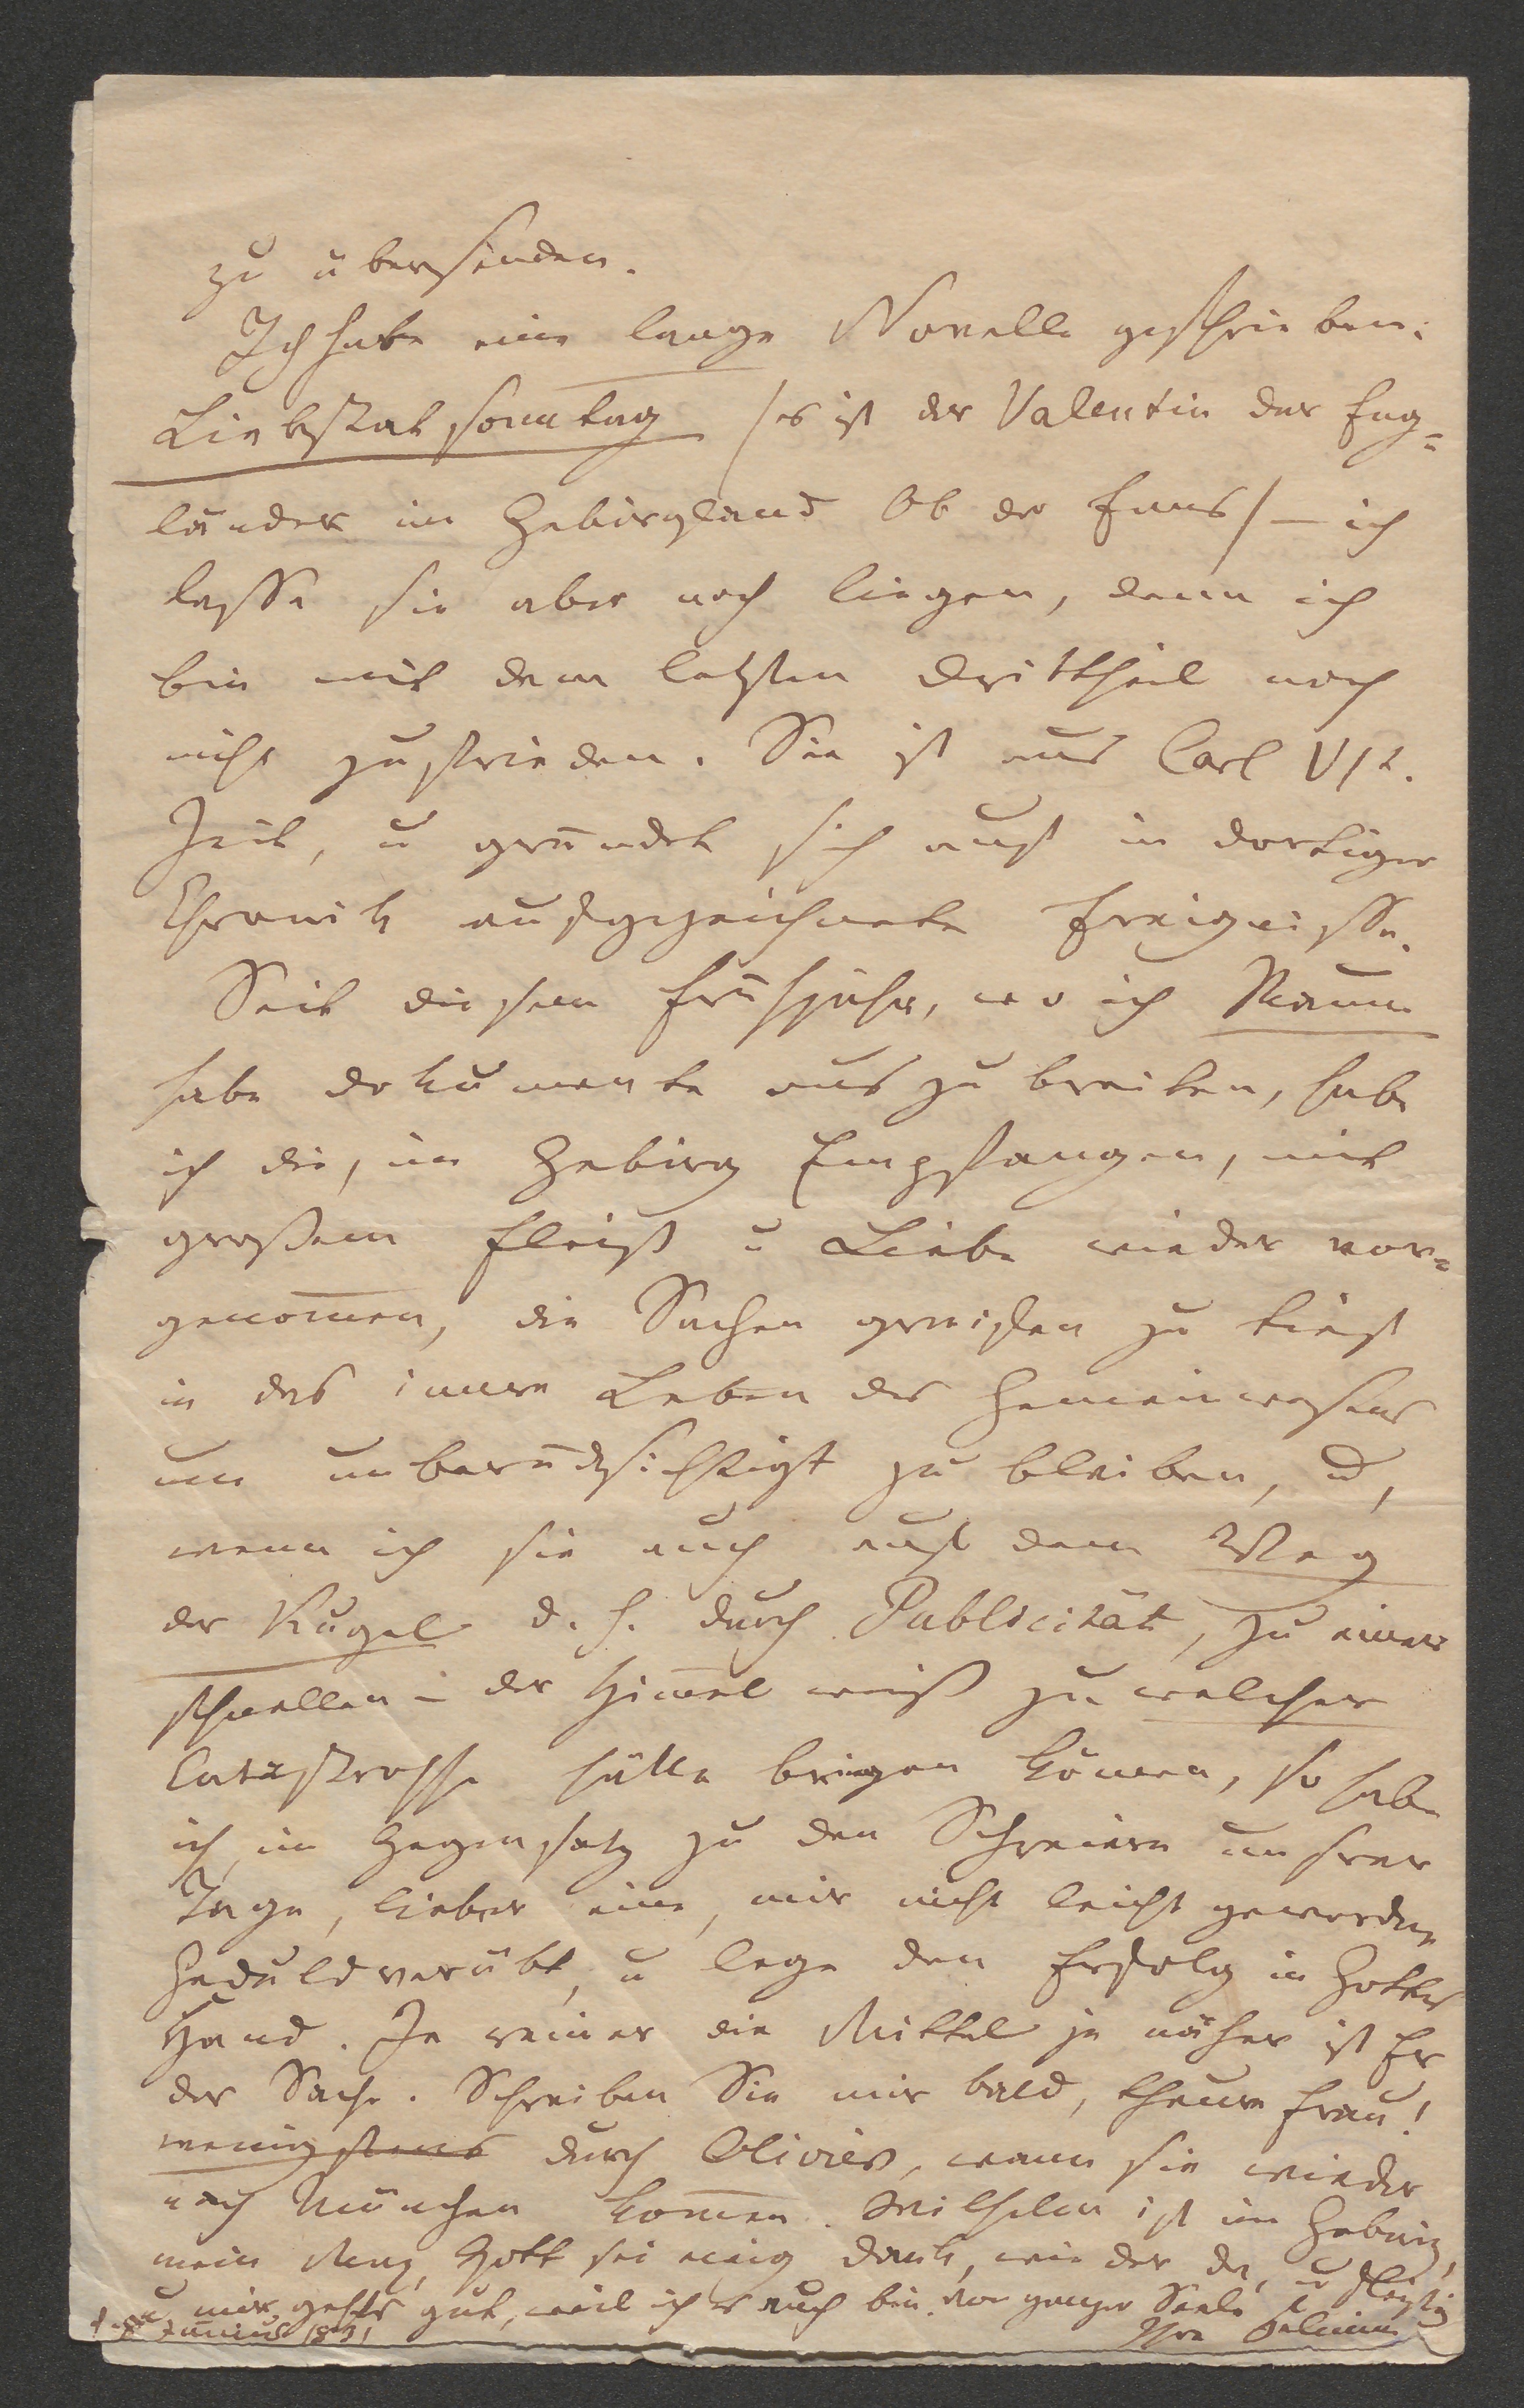 zu übersenden.
Ich habe eine lange Novelle geschrieben:
Liebstatsonntag /es ist der Valentin der Eng=
länder im Gebirgsland Ob der Enns/ – ich
lasse sie aber noch liegen, denn ich
bin mit dem letzten Drittheil noch
nicht zufrieden. Sie ist aus Carl VI t.
Zeit, u gründet sich auf in dortiger
Chronik aufgezeichnete Ereignisse.
Seit diesem Frühjahr, wo ich Raum
habe Dokumente auszubreiten, habe
ich die, im Gebirg Empfangen, mit
großem Fleiß u Liebe wieder vor=
genom̄en, die Sachen greifen zu tief
in das innre Leben des Gemeinwesens
um unberücksichtigt zu bleiben, u,
wenn ich sie auch auf dem Weg
der Kugel d. h. durch Publicität, zu einer
schnellen – der Him̄el weiß zu welcher
Catastrophe hätte bringen können, so habe
ich, im Gegensatz zu den Schreiern unsrer
Tage, lieber eine, mir nicht leicht gewordne
Geduld verübt, u lege den Erfolg in Gottes
Hand. Je reiner die Mittel je näher ist Er
der Sache. Schreiben Sie mir bald, theure Frau!
wenigstens durch Olivier, wann sie wieder
nach München kom̄en. Wilhelm ist im Gebirg,
mein Max, Gott sei ewig Dank, wie der da, u fleißig
u mir gehts gut, weil ich es auch bin. Von ganzer Seele
Junius 1831 Ihre